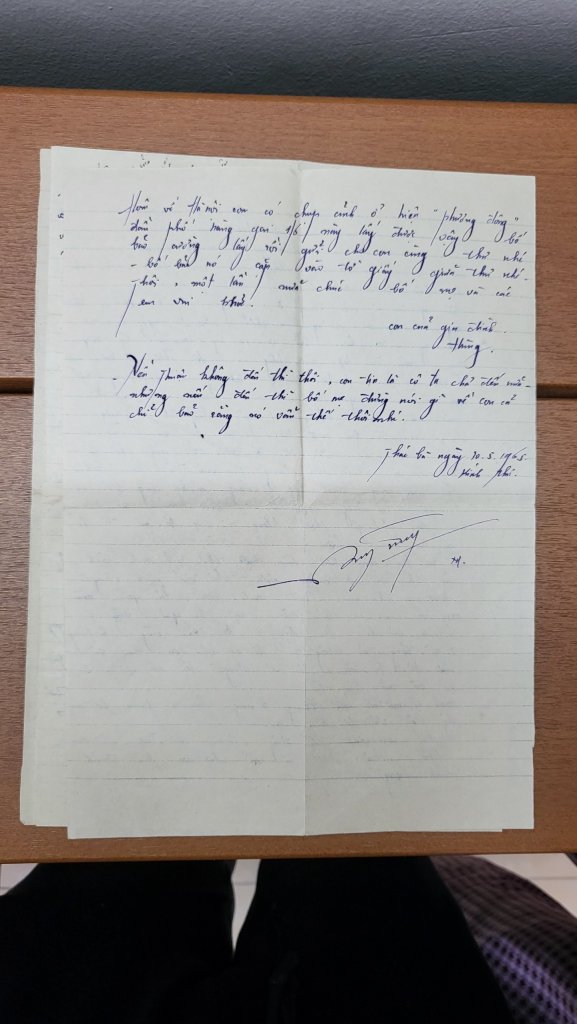 Hôm về Hà nội con có chụp ảnh ở hiệu "phương đông"
đầu phố hàng gai 1/6 này lấy được vậy bố
bảo cường lấy rồi gửi cho con cùng thư nhé
- bố bảo nó cặp vào tờ giấy giữa thư nhé.
Thôi, một lần nữa chúc bố mẹ và các
em vui khỏe.
con của gia đình.
Hùng.
- Nếu Thuận không đến thì thôi, con tin là cô ta chả đến nữa -
nhưng nếu đến thì bố mẹ đừng nói gì về con cả
chỉ bảo rằng nó vẫn thế thôi nhé.
Thác bà ngày 30.5.1965.